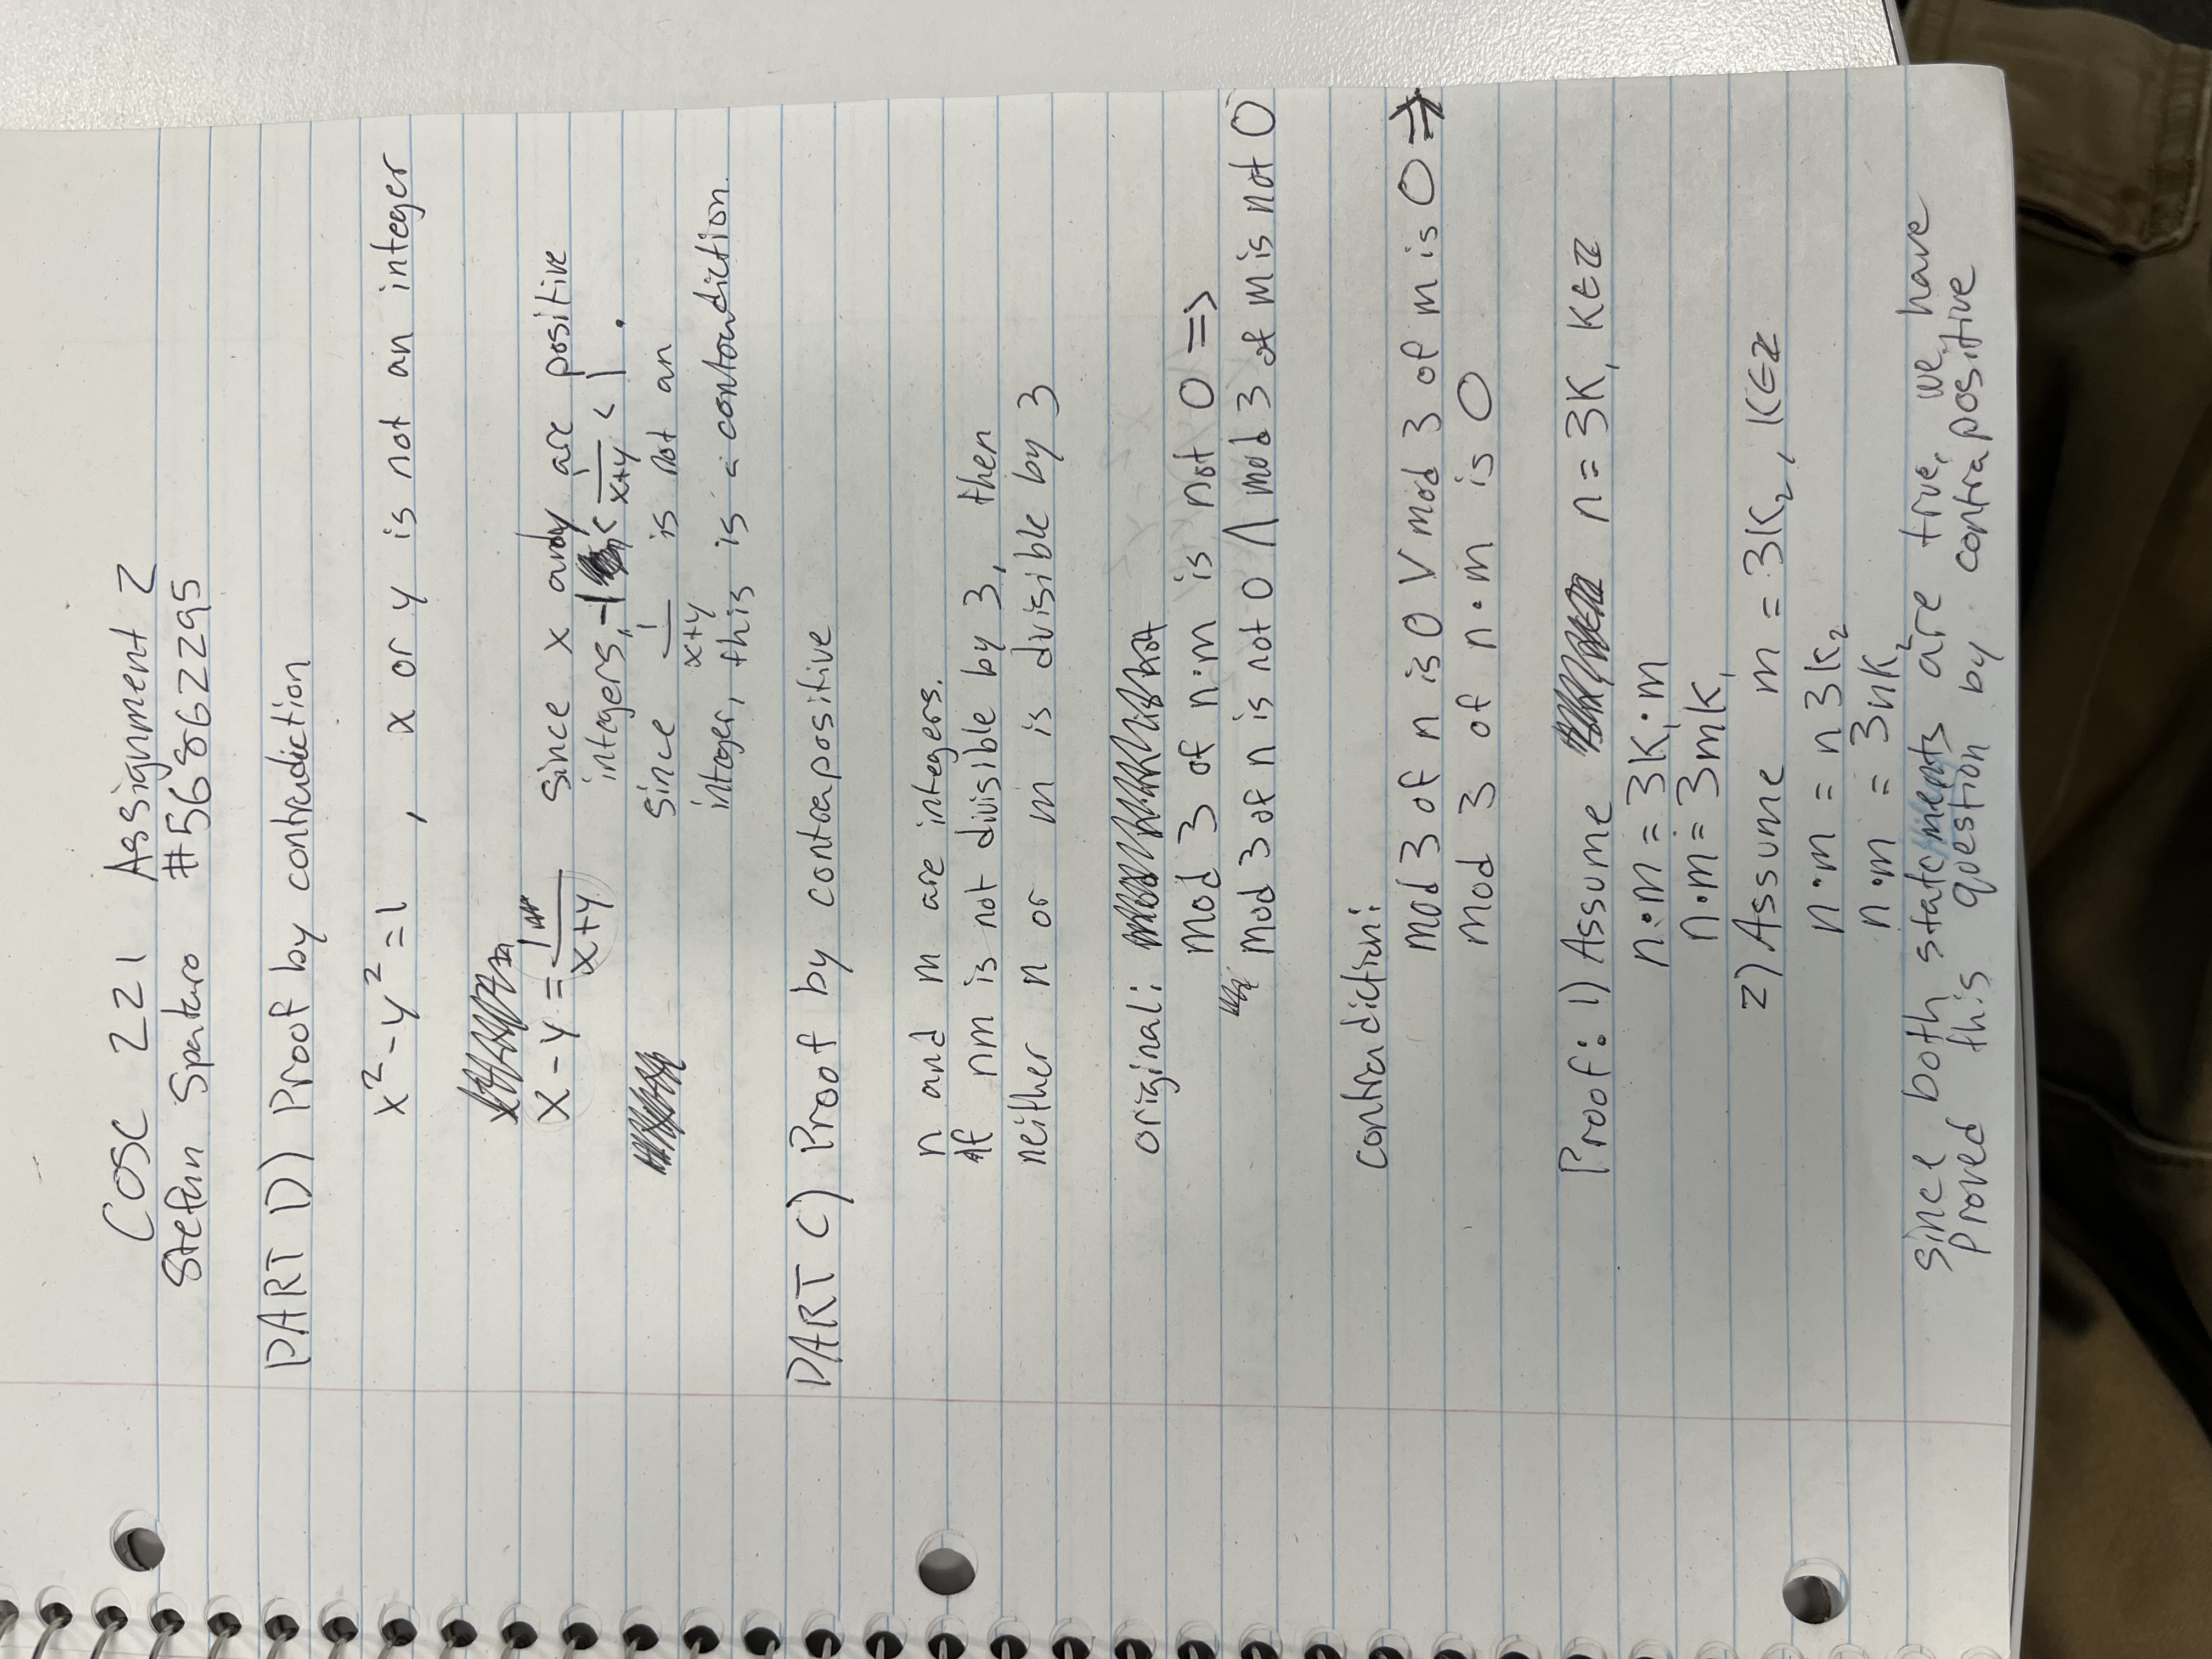 COSC 221 Assignment 2
Stefan Spataro #56862295
PART D) Proof by contradiction
x² - y² = 1 , x or y is not an integer
x - y = 1/(x+y) since x and y are positive
integers, -1 < 1/(x+y) < 1 .
since 1/(x+y) is not an
integer, this is a contradiction.
PART C) Proof by contrapositive
n and m are integers.
If nm is not divisible by 3, then
neither n or m is divisible by 3
original:
mod 3 of n·m is not 0 =>
mod 3 of n is not 0 ∧ mod 3 of m is not 0
contradiction:
mod 3 of n is 0 ∨ mod 3 of m is 0 =>
mod 3 of n·m is 0
Proof: 1) Assume n = 3K, K∈Z
n·m = 3K₁·m
n·m = 3mK₁
2) Assume m = 3K₂, K∈Z
n·m = n3K₂
n·m = 3nK₂
since both statements are true, we have
Proved this question by contrapositive